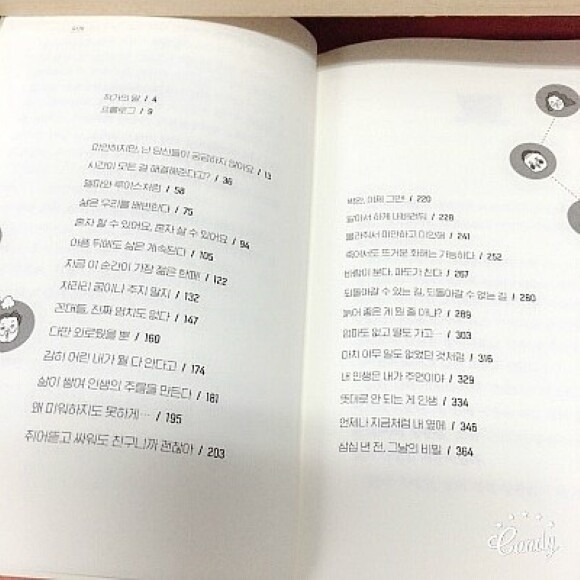 작가의 말 / 4
프롤로그 / 9
미안하지만, 난 당신들이 궁금하지 않아요 / 13
시간이 모든 걸 해결해준다고? / 36
델마와 루이스처럼 / 58
삶은 우리를 배반한다 / 75
혼자 할 수 있어요, 혼자 살 수 있어요 / 94
아픔 뒤에도 삶은 계속된다 / 105
지금 이 순간이 가장 젊은 한때! / 122
차라리 꿈이나 주지 말지 / 132
꼰대들, 진짜 염치도 없다 / 147
다만 외로웠을 뿐 / 160
감히 어린 내가 뭘 다 안다고 / 174
삶이 쌓여 인생의 주름을 만든다 / 181
왜 미워하지도 못하게… / 195
쥐어뜯고 싸워도 친구니까 괜찮아 / 203
이제 그만! / 220
알아서 하게 내버려둬 / 228
몰라줘서 미안하고 미안해 / 241
죽어서도 뜨거운 화해는 가능하다 / 252
바람이 분다, 파도가 친다 / 267
되돌아갈 수 있는 길, 되돌아갈 수 없는 길 / 280
늙어 좋은 게 뭔 줄 아냐? / 289
엄마도 없고 딸도 가고… / 303
마치 아무 일도 없었던 것처럼 / 316
내 인생은 내가 주인이야 / 329
뜻대로 안 되는 게 인생 / 334
언제나 지금처럼 내 옆에 / 346
삼십 년 전, 그날의 비밀 / 364
Candy